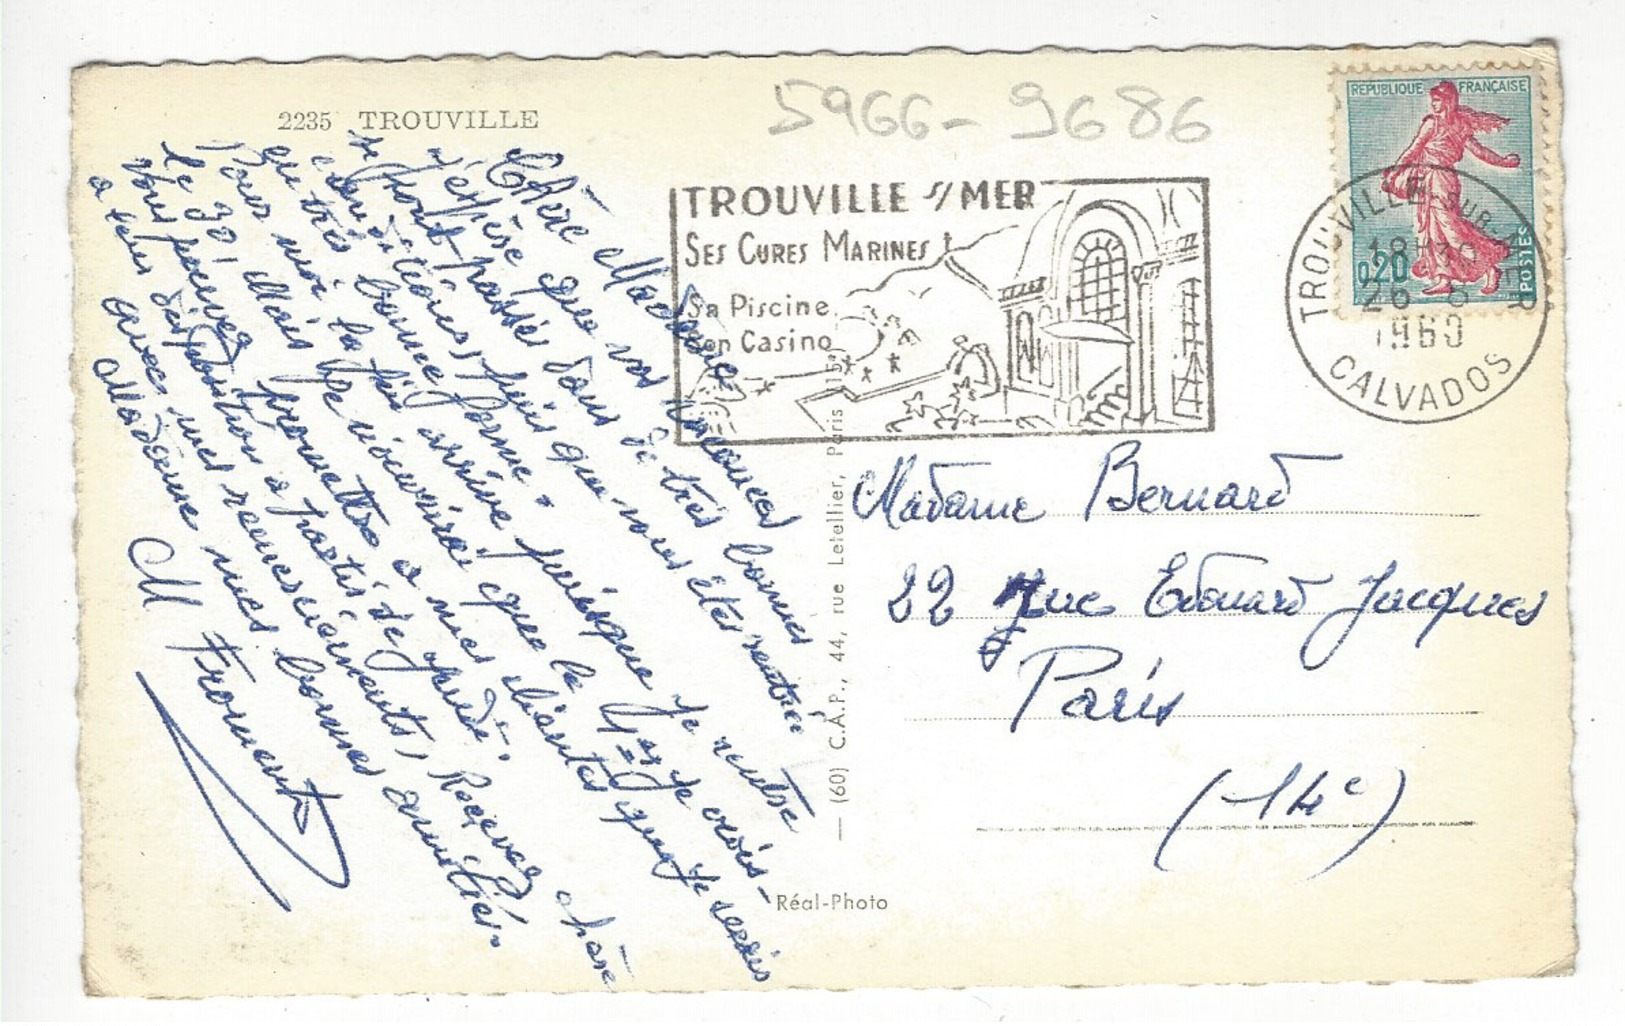 2235 TROUVILLE
5966-9686
REPUBLIQUE FRANÇAISE
0,20
POSTES
TROUVILLE-SUR-MER
18H30
26 8
1960
CALVADOS
TROUVILLE S/ MER
SES CURES MARINES
Sa Piscine
Son Casino
Chère Madame
J'espère que vos vacances
se sont passées dans de très bonnes
conditions, puis que vous êtes rentrée
en très bonne forme.
Pour moi la fin arrive puisque je rentre
le 30, mais je n'ouvrirai que le je crois-
vous pouvez promettre à mes clientes que je serais
à leur disposition à partir de jeudi.
avec mes remerciements, Recevez chère
Madame mes bonnes amitiés.
M Froment
Madame Bernard
22 Rue Edouard Jacques
Paris
(14e)
— (60) C.A.P., 44, rue Letellier, Paris 15e
Réal-Photo